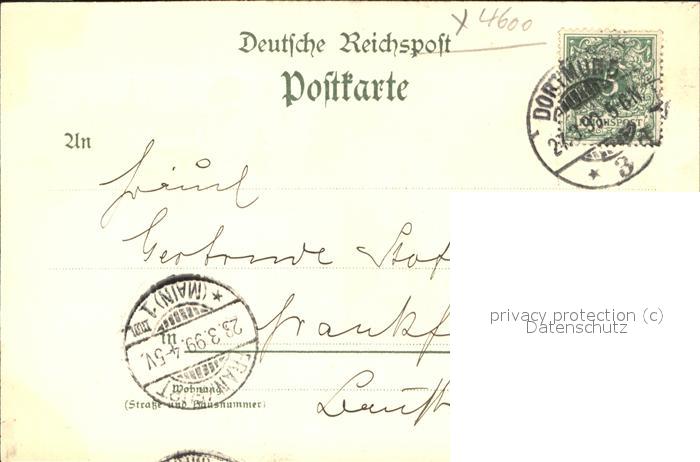 x 4600
Deutsche Reichspost
Postkarte
DORTMUND
3
REICHSPOST
An
Fräul
Gertrude
privacy protection (c)
Datenschutz
FRANKFURT (MAIN) 1
28.3.99. 4-5V.
in
Frankf
Wohnung
(Straße und Hausnummer)